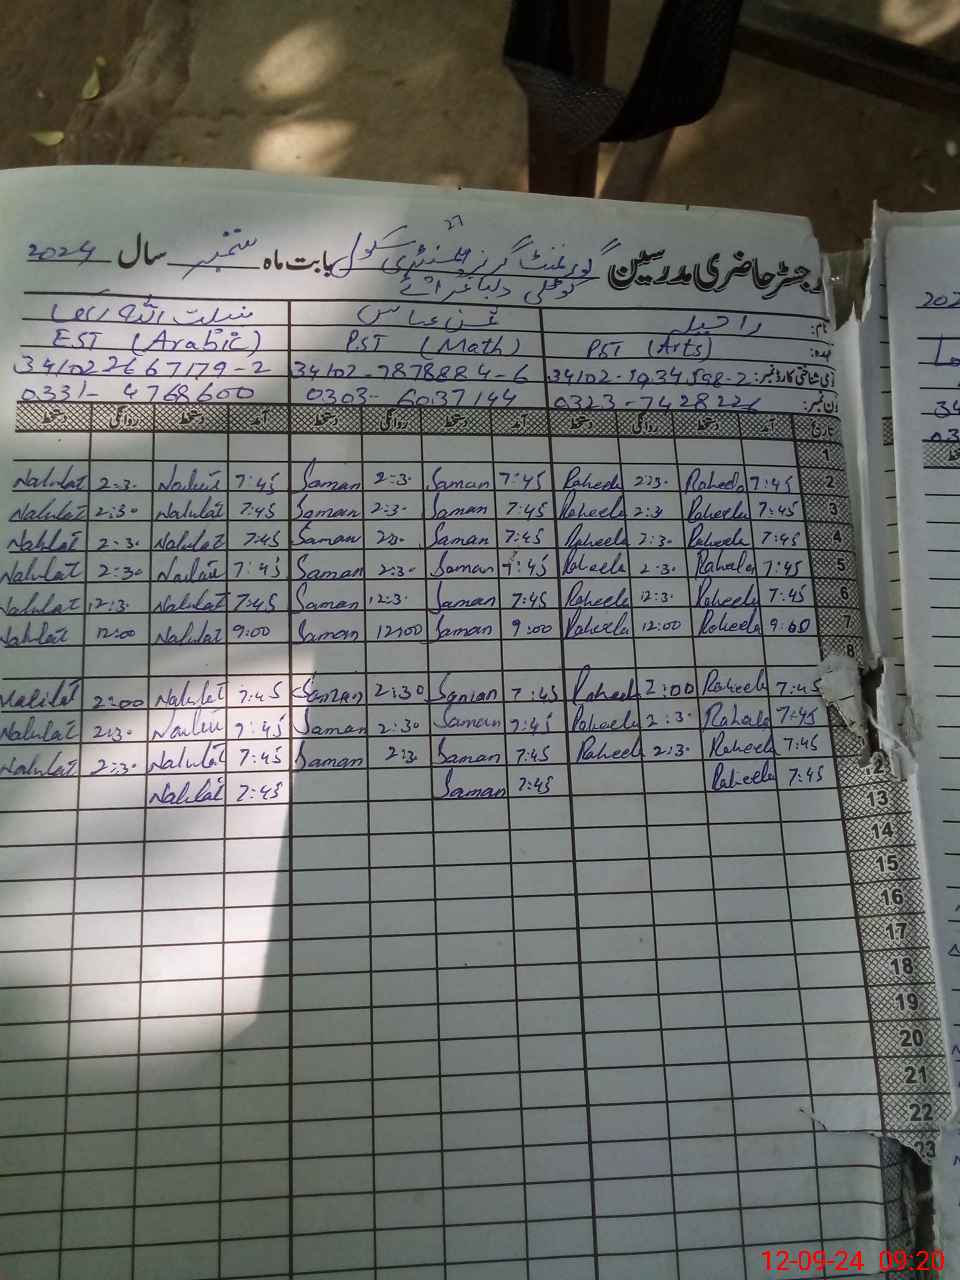 رجسٹر حاضری مدرسین گورنمنٹ گرلز ایلیمنٹری سکول بابت ماہ ستمبر سال 2024
27
نام: راحیلہ
عہدہ: PST (Arts) PST (Math) EST (Arabic)
ای شناختی کارڈ نمبر: 34102-7878884-6 341022667179-2
ون نمبر: 0323-7428226 0303-6037144 0331-4768600
تاریخ آمد دستخط روانگی دستخط آمد دستخط روانگی دستخط آمد دستخط روانگی دستخط
1
2 7:45 Raheela 2:30 Raheela 7:45 Saman 2:3. Saman 7:45 Nahlat 2:3. Nahlat
3 7:45 Raheela 2:3. Raheela 7:45 Saman 2:3. Saman 7:45 Nahlat 2:30 Nahlat
4 7:45 Raheela 2:3. Raheela 7:45 Saman 2:3. Saman 7:45 Nahlat 2:3. Nahlat
5 7:45 Raheela 2:3. Raheela 7:45 Saman 2:3. Saman 7:45 Nahlat 2:30 Nahlat
6 7:45 Raheela 12:3. Raheela 7:45 Saman 12:3. Saman 7:45 Nahlat 12:3. Nahlat
7 9:00 Raheela 12:00 Raheela 9:00 Saman 12:00 Saman 9:00 Nahlat 12:00 Nahlat
8
7:45 Raheela 2:00 Raheela 7:45 Saman 2:30 Saman 7:45 Nahlat 2:00 Nahlat
7:45 Raheela 2:3. Raheela 7:45 Saman 2:30 Saman 7:45 Nahlat 2:3. Nahlat
7:45 Raheela 2:3. Raheela 7:45 Saman 2:3. Saman 7:45 Nahlat 2:3. Nahlat
12 7:45 Raheela 7:45 Saman 7:45 Nahlat
13
14
15
16
17
18
19
20
21
22
23
12-09-24 09:20